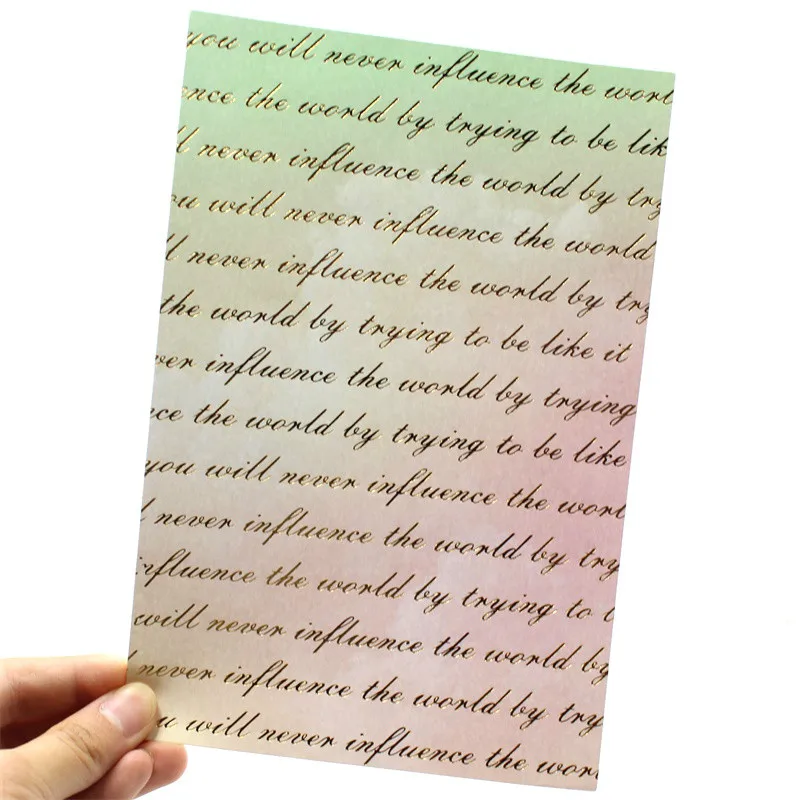 you will never influence the worl
ence the world by trying to be lik
ll never influence the world by try
ou will never influence the world
ll never influence the world by try
the world by trying to be like it
ver influence the world by trying
nce the world by trying to be like
you will never influence the worl
l never influence the world by try
influence the world by trying to b
will never influence the world by
never influence the world by try
ou will never influence the worl